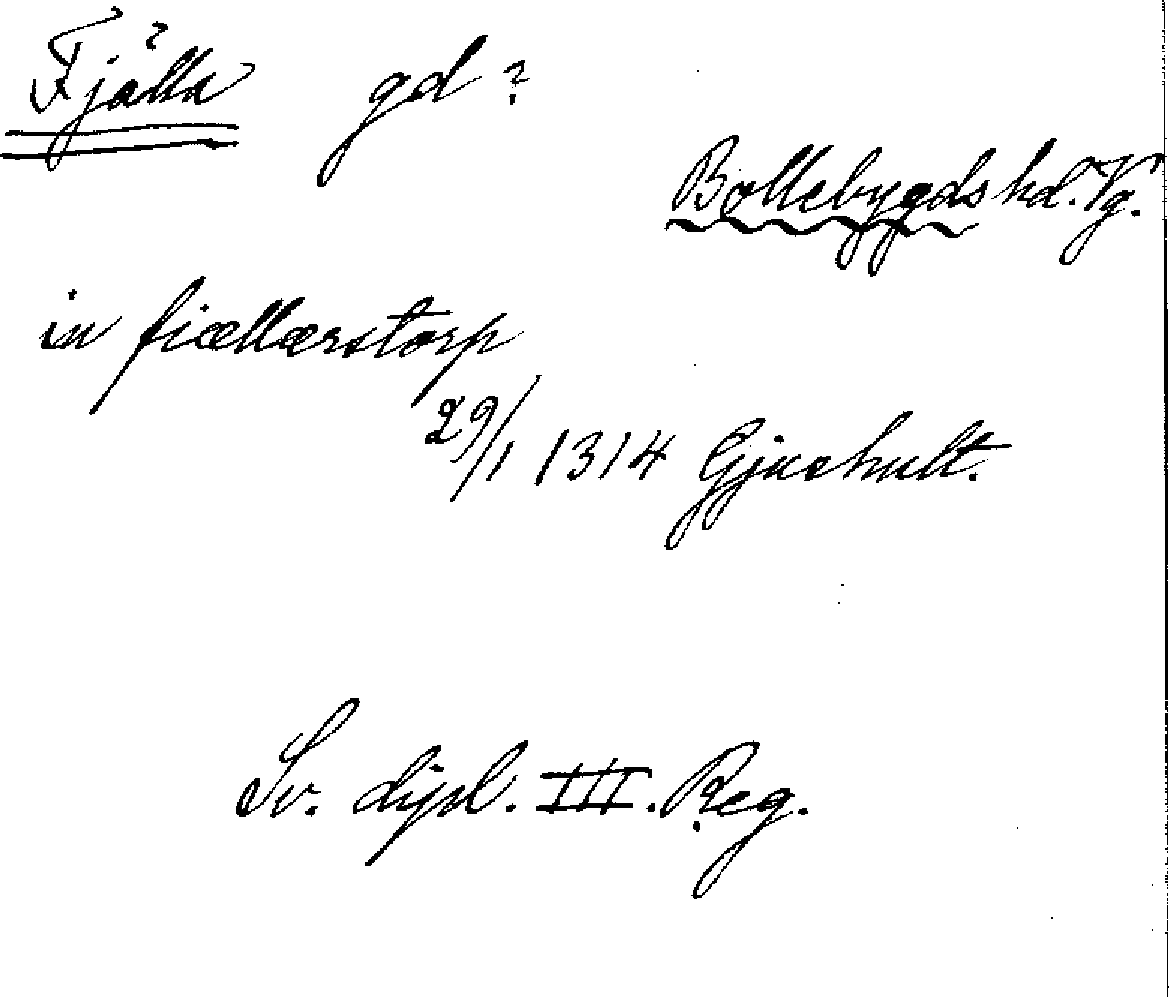 Fjälla gd ?
Bollebygds hd. Vg.
in fiællærstorp
29/1 1314 Gjushult.
Sv. dipl. III. Reg.